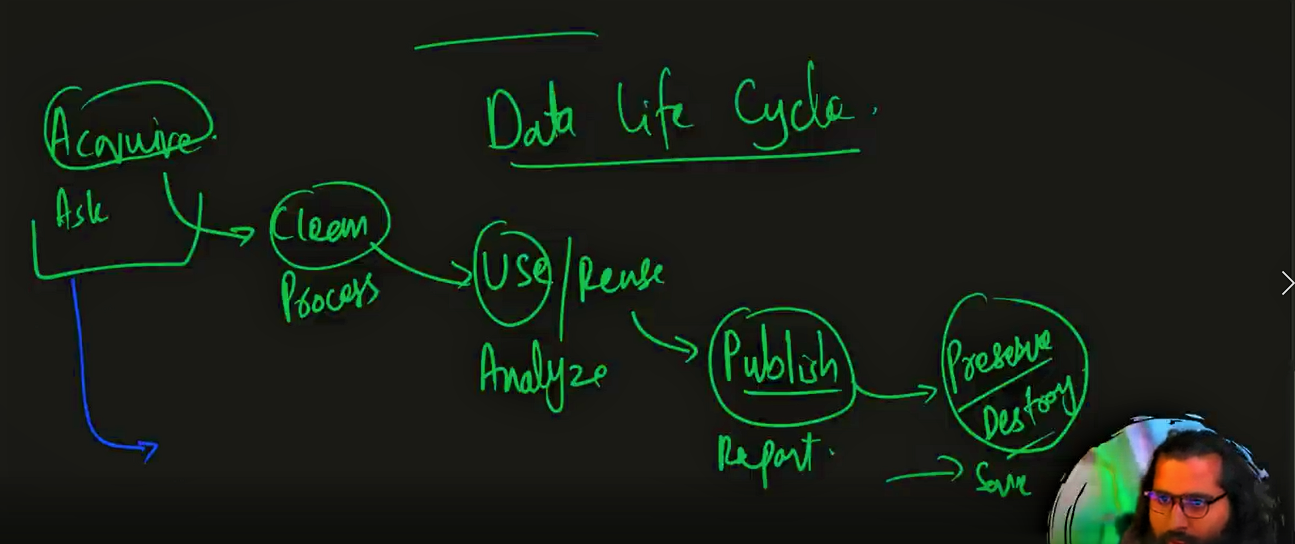 Data Life Cycle.
Acquire
Ask
Clean
Process
Use/Reuse
Analyze
Publish
Report.
Preserve
Destroy
Save